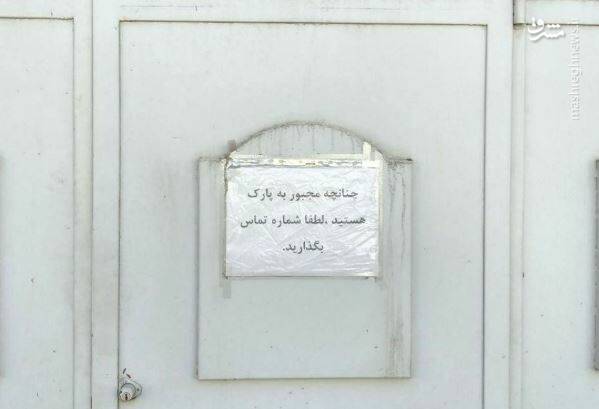 چنانچه مجبور به پارک
هستید ،لطفا شماره تماس
بگذارید.
مشرق
mashreghnews.ir